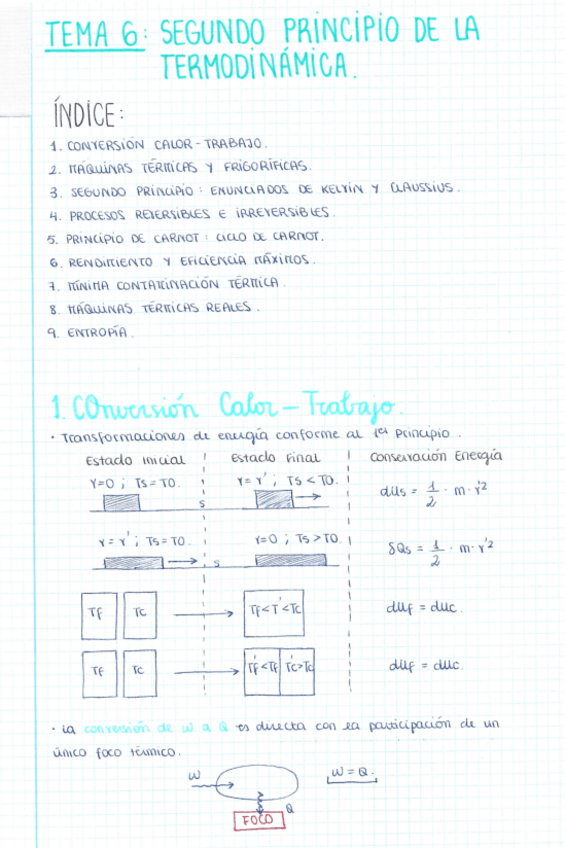 TEMA 6: SEGUNDO PRINCIPIO DE LA
TERMODINÁMICA.
ÍNDICE:
1. CONVERSIÓN CALOR-TRABAJO.
2. MÁQUINAS TÉRMICAS Y FRIGORÍFICAS.
3. SEGUNDO PRINCIPIO: ENUNCIADOS DE KELVIN Y CLAUSSIUS.
4. PROCESOS REVERSIBLES E IRREVERSIBLES.
5. PRINCIPIO DE CARNOT: CICLO DE CARNOT.
6. RENDIMIENTO Y EFICIENCIA MÁXIMOS.
7. MÍNIMA CONTAMINACIÓN TÉRMICA.
8. MÁQUINAS TÉRMICAS REALES.
9. ENTROPÍA.
1. Conversión Calor-Trabajo.
· Transformaciones de energía conforme al 1er Principio.
Estado Inicial Estado Final Conservación Energía
V=0 ; Ts=T0. V=V' ; Ts<T0. dUs = 1/2 · m · v'2
S
V=V' ; Ts=T0. V=0 ; Ts>T0. δQs = 1/2 · m · v'2
S
Tf Tc Tf<T'<Tc dUf = dUc.
Tf Tc T'f<Tf T'c>Tc dUf = dUc.
· La conversión de W a Q es directa con la participación de un
único foco térmico.
W W = Q.
Q
FOCO